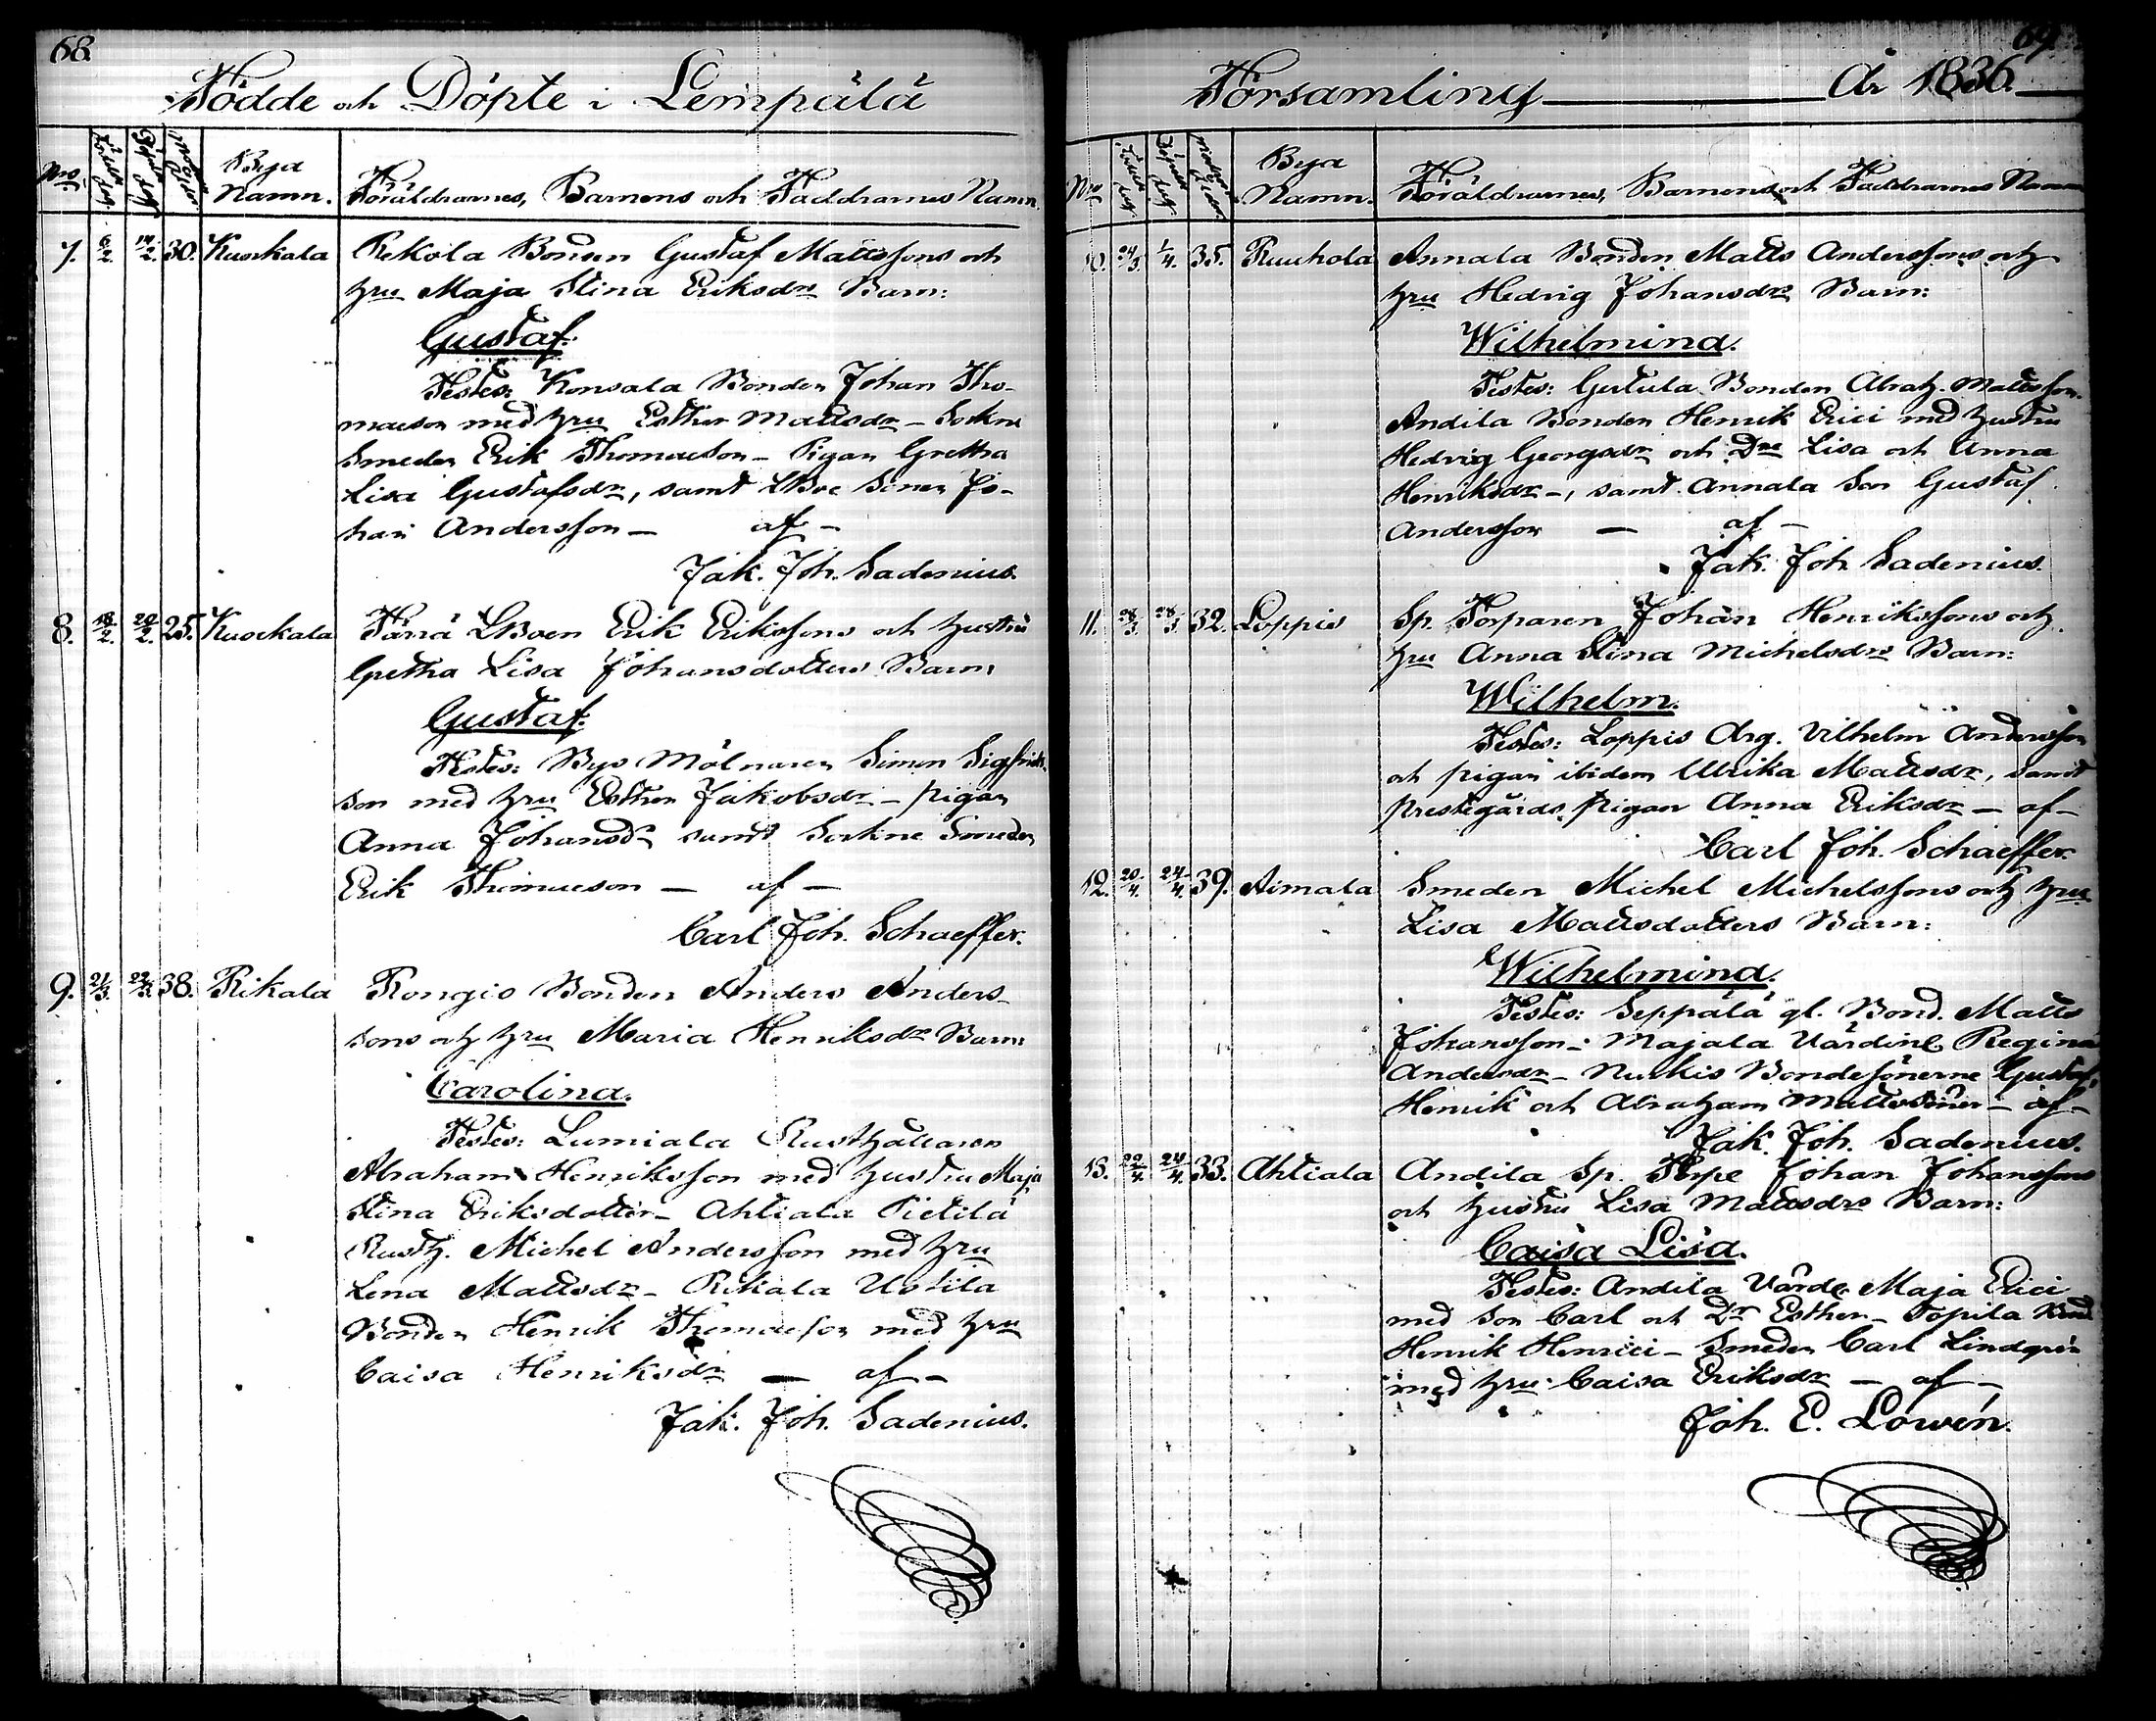 68.
Födde och Döpte i Lempälä
Nro
Födelse dag.
Döpelse dag
Modrens ålder
Bya Namn.
Föräldrarnes, Barnens och Faddrarnes Namn.
7. 6/2. 14/2. 30. Kuockala Rekola Bonden Gustaf Mattssons och
hru Maja Stina Eriksdrs Barn:
Gustaf.
Testes: Konsala Bonden Johan Tho-
masson med hru Esther Mattsdr – Sockne
Smeden Erik Thomasson – Pigan Gretha
Lisa Gustafsdr, samt LBoe Sonen Jo-
han Andersson – af –
Jak. Joh. Sadenius.
8. 18/2. 20/2. 25. Kuockala Färrä LBoen Erik Erikssons och hustru
Gretha Lisa Johansdotters Barn:
Gustaf.
Testes: Bys Mölnaren Simon Sigfrids-
son med hru Esther Jakobsdr – pigan
Anna Johansdr samt Sockne Smeden
Erik Thomasson – af –
Carl Joh. Schaeffer.
9. 21/3. 22/3. 38. Rikala Rongio Bonden Anders Anders-
sons och hru Maria Henriksdrs Barn:
Carolina.
Testes: Lumiala Rusthållaren
Abraham Henriksson med hustru Maja
Stina Eriksdotter – Ahtiala Pietilä
Rusth. Michel Andersson med hru
Lena Mattsdr – Rikala Uotila
Bonden Henrik Thomasson med hru
Caisa Henriksdr – af –
Jak. Joh. Sadenius.
69.
Församling År 1836.
Nro
Födelse dag
Döpelse dag
Modrens ålder
Bya Namn.
Föräldrarnes, Barnens och Faddrarnes Namn
10. 24/3. 1/4. 35. Ruuhola Annala Bonden Matts Anderssons och
hru Hedvig Johansdrs Barn:
Wilhelmina.
Testes: Gertula Bonden Abrah. Mattsson.
Andila Bonden Henrik Erici med hustru
Hedvig Georgsdr och Drne Lisa och Anna
Henriksdr –, samt Annala Son Gustaf
Andersson – af –
Jak. Joh Sadenius.
11. 28/3. 28/3. 32. Loppis Sp. Torparen Johan Henrikssons och
hru Anna Stina Michelsdrs Barn:
Wilhelm.
Testes: Loppis Drg. Vilhelm Andersson
och pigan ibidem Ulrika Mattsdr, samt
prestegårds pigan Anna Eriksdr – af –
Carl Joh. Schaeffer.
12. 20/4. 24/4. 39. Aimala Smeden Michel Michelssons och hru
Lisa Mattsdotters Barn:
Wilhelmina.
Testes: Seppälä gl. Bond. Matts
Johansson – Majala Värdine Regina
Andersdr – Nurkis Bondesönerne Gustaf,
Henrik och Abraham Mattssöner – af –
Jak. Joh. Sadenius.
13. 22/4. 24/4. 33. Ahtiala Andila Sp. Torpe Johan Johanssons
och hustru Lisa Mattsdrs Barn:
Caisa Lisa.
Testes: Andila Värde Maja Erici
med Son Carl och Dr Esther – Topila Bond
Henrik Henrici – Smeden Carl Lindqvén
med hru Caisa Eriksdr – af –
Joh. E. Lowén.